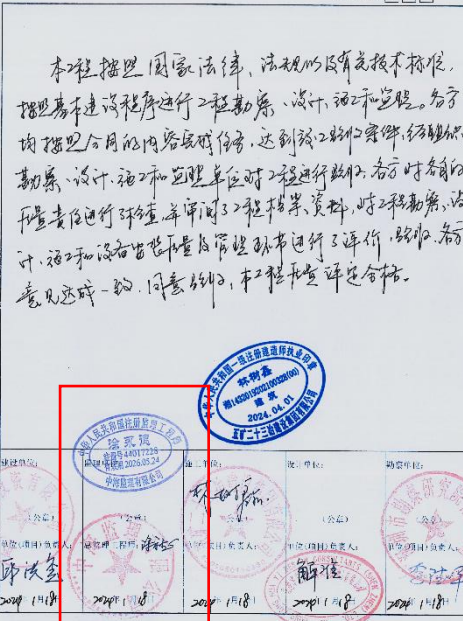 本工程按照国家法律、法规以及有关技术标准,
按照基本建设程序进行工程勘察、设计、施工和监理。各方
均按照合同的内容完成任务,达到竣工验收条件,经组织
勘察、设计、施工和监理单位对工程进行验收,各方对各自的
质量责任进行了检查,并审阅了工程档案、资料,对工程勘察、设
计、施工和设备安装质量及管理环节进行了评价,验收各方
意见达成一致,同意验收,本工程质量评定合格。
中华人民共和国一级注册建造师执业印章
林树森
建筑
2024.04.01
五矿二十三冶建设集团有限公司
中华人民共和国注册监理工程师
注册号44017228
有效期2026.05.24
中海监理有限公司
建设单位:
监理单位:
施工单位:
设计单位:
勘察单位:
(公章)
(公章)
(公章)
(公章)
单位(项目)负责人:
总监理工程师:
单位(项目)负责人:
单位(项目)负责人:
单位(项目)负责人:
2024年1月18日
2024年1月18日
2024年1月18日
2024年1月18日
2024年1月18日